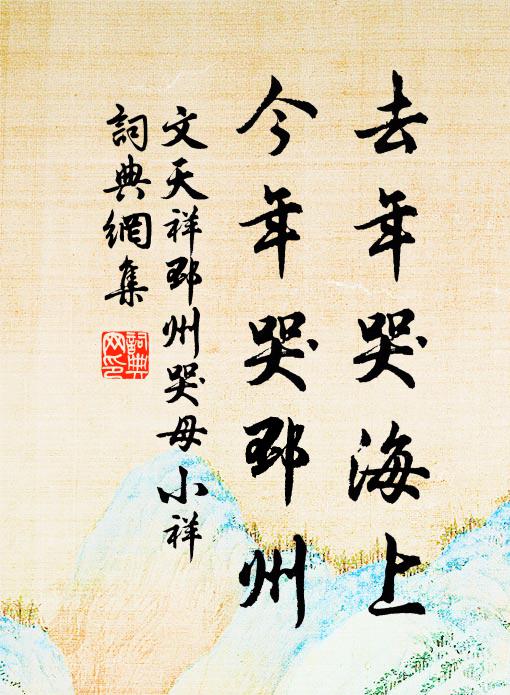 去年哭海上
今年哭邳州
文天祥邳州哭母小祥
詞典網集
詞典网印